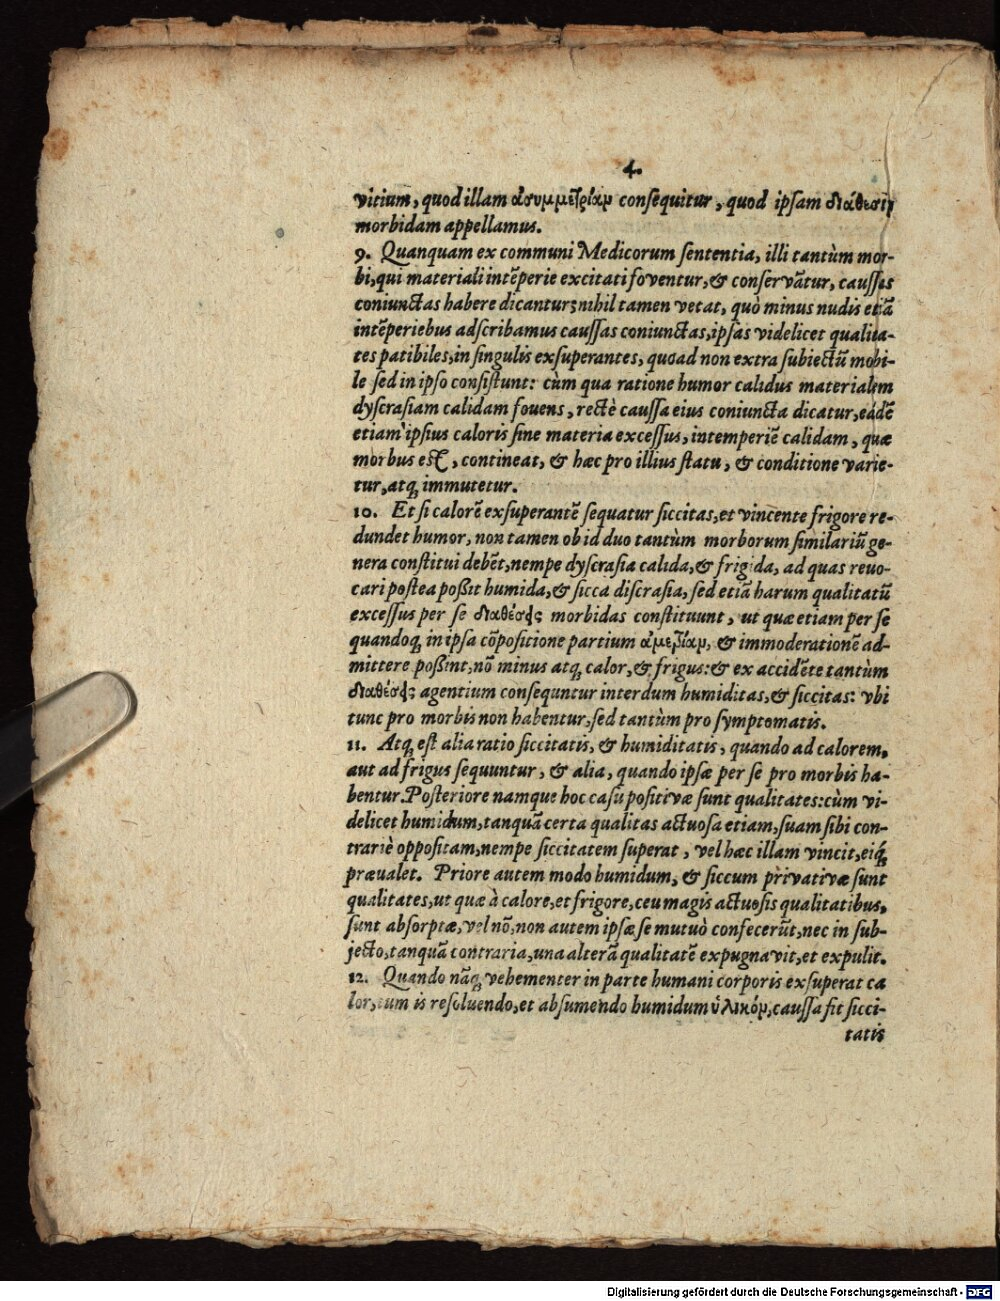 4.
vitium, quod illam ἀσυμμετρίαν consequitur, quod ipsam διάθεσιν
morbidam appellamus.
9. Quanquam ex communi Medicorum sententia, illi tantùm mor-
bi, qui materiali intẽperie excitati foventur, & conservãtur, caussas
coniunctas habere dicantur; nihil tamen vetat, quò minus nudis etiã
intẽperiebus adscribamus caussas coniunctas, ipsas videlicet qualita-
tes patibiles, in singulis exsuperantes, quoad non extra subiectũ mobi-
le sed in ipso consistunt: cùm qua ratione humor calidus materialem
dyscrasiam calidam fovens, rectè caussa eius coniuncta dicatur, eadẽ
etiam ipsius caloris sine materia excessus, intemperiẽ calidam, quæ
morbus est, contineat, & hæc pro illius statu, & conditione varie-
tur, atq; immutetur.
10. Et si calorẽ exsuperantẽ sequatur siccitas, et vincente frigore re-
dundet humor, non tamen ob id duo tantùm morborum similariũ ge-
nera constitui debẽt, nempe dyscrasia calida, & frigida, ad quas revo-
cari postea poßit humida, & sicca discrasia, sed etiã harum qualitatũ
excessus per se διαθέσεις morbidas constituunt, ut quæ etiam per se
quandoq; in ipsa cõpositione partium ἀμετρίαν, & immoderationẽ ad-
mittere poßint, nõ minus atq; calor, & frigus: & ex accidẽte tantùm
διαθέσεις agentium consequntur interdum humiditas, & siccitas: vbi
tunc pro morbis non habentur, sed tantùm pro symptomatis.
11. Atq; est alia ratio siccitatis, & humiditatis, quando ad calorem,
aut ad frigus sequuntur, & alia, quando ipsæ per se pro morbis ha-
bentur. Posteriore namque hoc casu positivæ sunt qualitates: cùm vi-
delicet humidum, tanquã certa qualitas actuosa etiam, suam sibi con-
trariè oppositam, nempe siccitatem superat, vel hæc illam vincit, eiq́;
prævalet. Priore autem modo humidum, & siccum privativæ sunt
qualitates, ut quæ à calore, et frigore, ceu magis actuosis qualitatibus,
sunt absorptæ, vel nõ, non autem ipsæ se mutuò confecerũt, nec in sub-
jecto, tanquã contraria, una alterã qualitatẽ expugnavit, et expulit.
12. Quando nãq; vehementer in parte humani corporis exsuperat ca
lor, tum is resoluendo, et absumendo humidum ὑλικόν, caussa fit sicci-
tatis
Digitalisierung gefördert durch die Deutsche Forschungsgemeinschaft - DFG